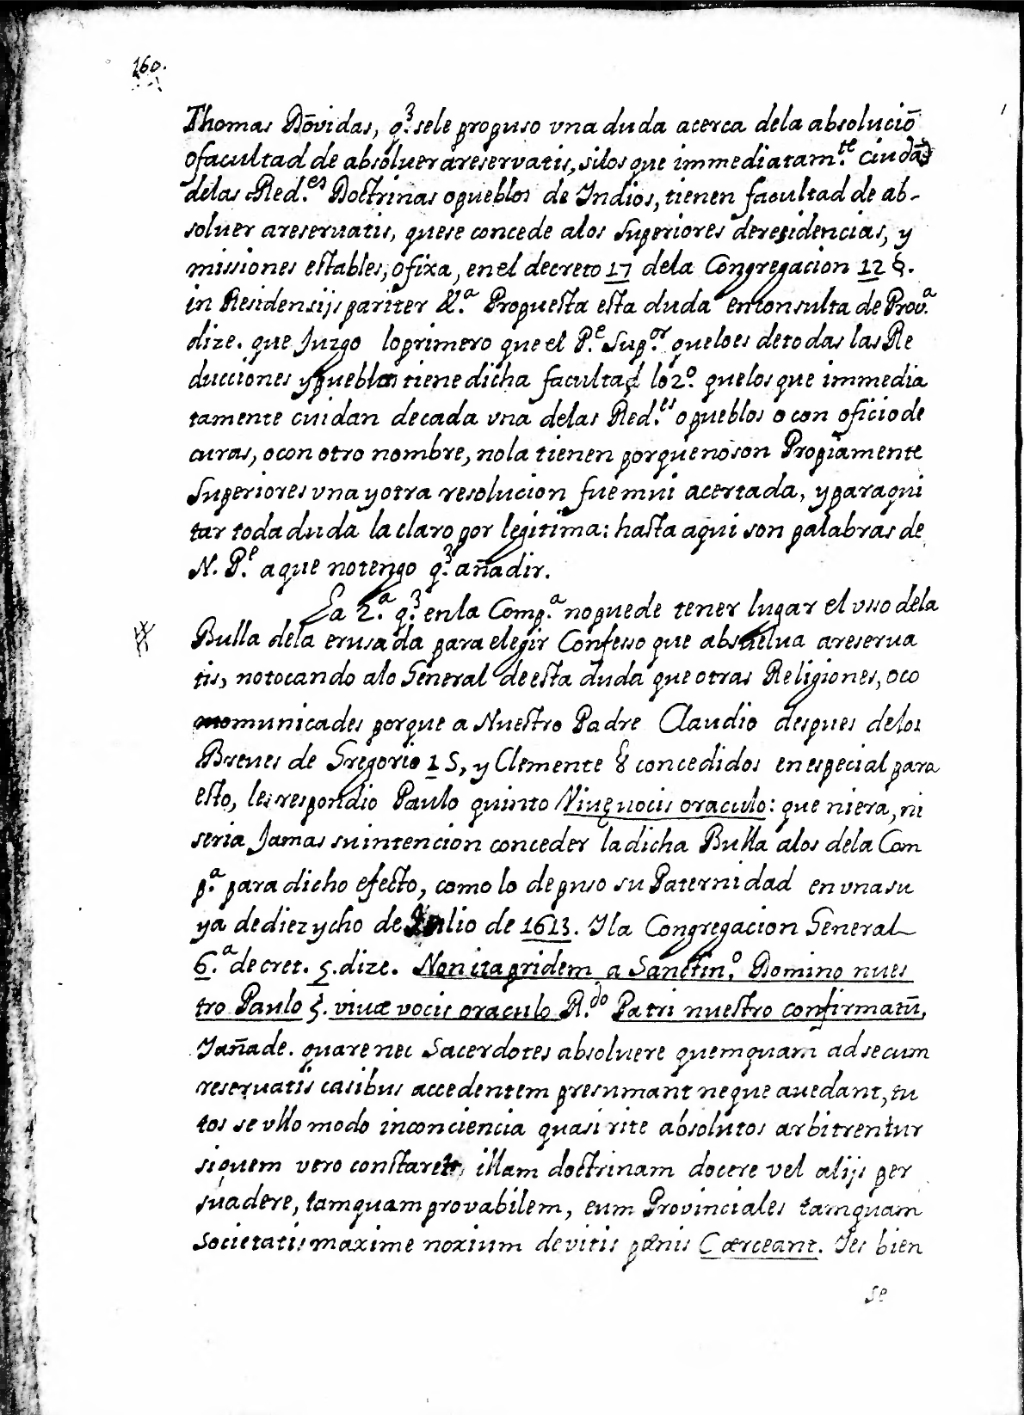 160.
Thomas Dōvidas, q.͛ sele propuso vna duda acerca dela absoluciō
ofacultad de absoluer areseruatis, silos que immediatam.te Ciudā
delas Red.es Doctrinas opueblos de Indios, tienen facultad de ab-
soluer areseruatis, quese concede alos Superiores deresidencias, y
missiones estables, ofixa, enel decreto 17 dela Congregacion 12 §.
in Residensijs pariter &.a Propuesta esta duda enconsulta de Prov.a
dize. que Juzgo loprimero que el P.e Sup.or queloes detodas las Re
ducciones ypueblos tiene dicha facultad lo 2.o quelos que immedia
tamente cuidan decada vna delas Red.es opueblos o con oficio de
curas, ocon otro nombre, nola tienen porque noson Propiamente
Superiores vna yotra resolucion fue mui acertada, yparaqui
tar toda duda la claro por legitima: hasta aqui son palabras de
N. P.e aque notengo q.͛ añadir.
La 2.a q.͛ enla Comp.a nopuede tener lugar el vso dela
Bulla dela crusada para elegir Confesso que absuelua areserua
tis, notocando alo General de esta duda que otras Religiones, oco
momunicades porque a Nuestro Padre Claudio despues delos
Breues de Gregorio 15, y Clemente 8 concedidos en especial para
esto, les respondio Paulo quinto Viuęuocis oraculo: que niera, ni
seria Jamas suintencion conceder ladicha Bulla alos dela Com
p.a para dicho efecto, como lo depuso su Paternidad en vnasu
ya de diez ycho de Julio de 1613. Y la Congregacion General
6.a decret. 5. dize. Non ita pridem a Sanctin.o Domino nues
tro Paulo 5. viuæ vocis oraculo R.do Patri nuestro confirmatū,
Yañade. quare nec Sacerdotes absoluere quemquam adsecum
reseruatis casibus accedentem presumant neque auedant, tu
tos se vllo modo inconciencia quasi rite absolutos arbitrentur
siquem vero constaret, illam doctrinam docere vel alijs per
suadere, tamquam provabilem, eum Provinciales tamquam
Societatis maxime noxium devitis pœnis Cœrceant. Yes bien
se